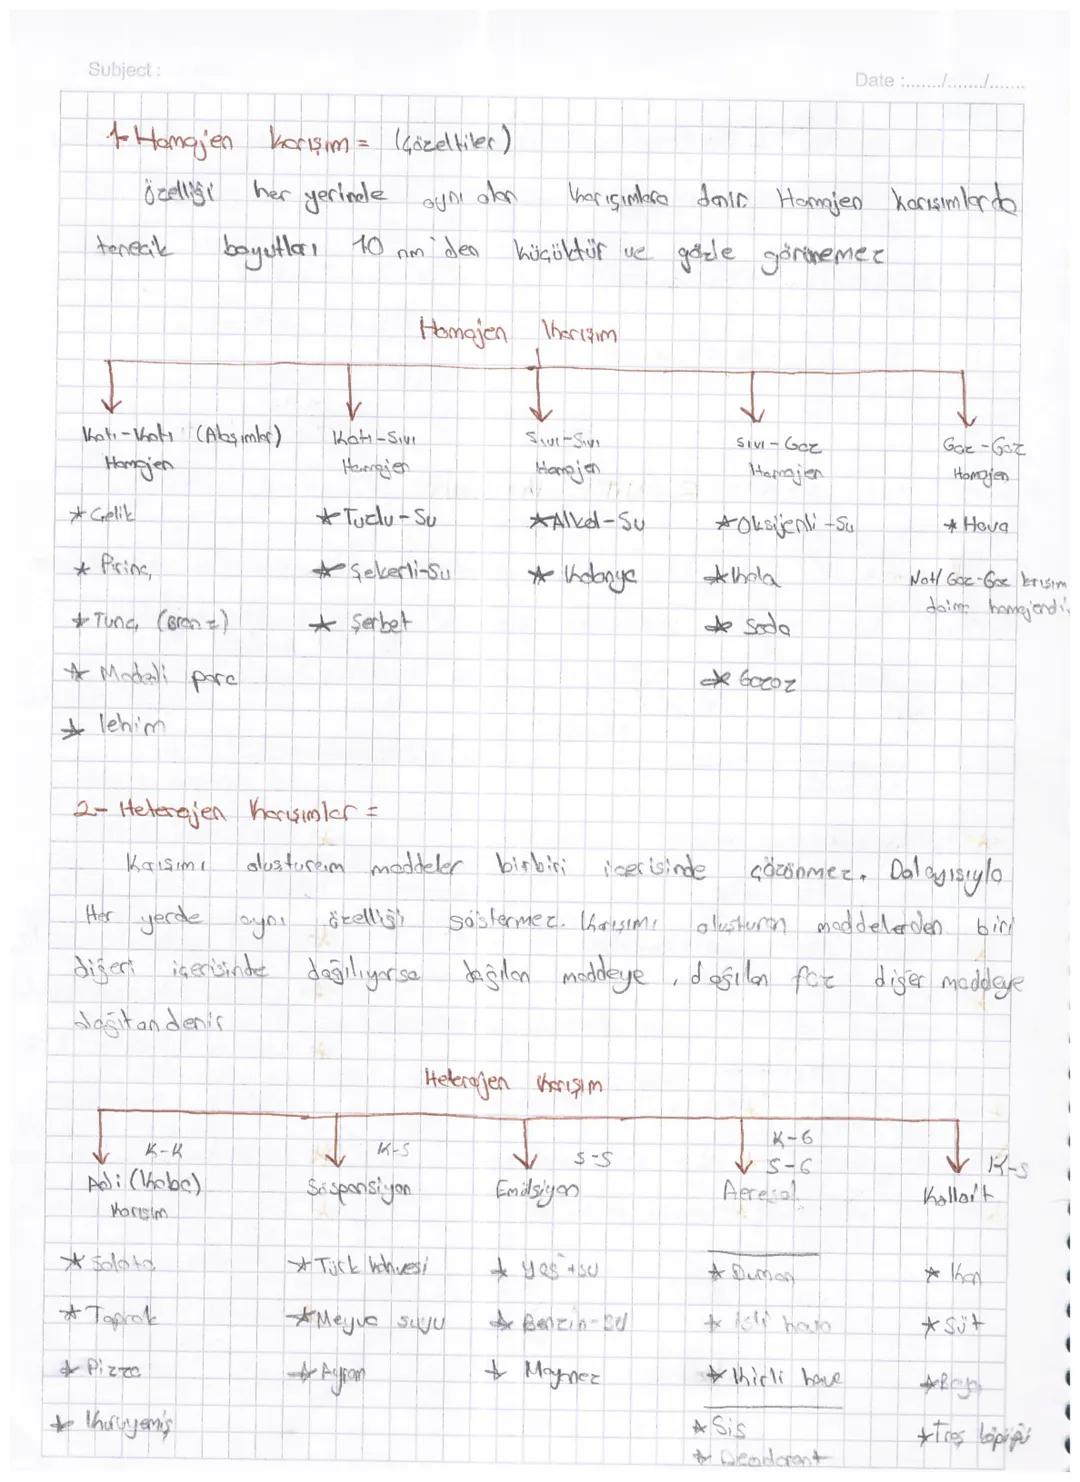 Subject :
Date :......./......./.......
1- Homojen karışım = (Çözeltiler)
özelliği her yerinde aynı olan karışımlara denir. Homojen karışımlarda
tanecik boyutları 10 nm'den küçüktür ve gözle görünemez
Homojen Karışım
Katı-Katı (Alaşımlar) Homojen
* Çelik
* Pirinç
* Tunç (Bronz)
* Madeni para
* lehim
Katı-Sıvı Homojen
* Tuzlu-Su
* Şekerli-Su
* Şerbet
Sıvı-Sıvı Homojen
* Alkol-Su
* Kolonya
Sıvı-Gaz Homojen
* Oksijenli-Su
* Kola
* Soda
* Gazoz
Gaz-Gaz Homojen
* Hava
Not/ Gaz-Gaz krışım
daima homojendir
2- Heterojen Karışımlar =
Karışımı oluşturam maddeler birbiri içerisinde çözünmez. Dolayısıyla
Her yerde aynı özelliği göstermez. Karışımı oluşturan maddelerden biri
diğeri içerisinde dağılıyorsa dağılan maddeye, dağılan faz diğer maddeye
dağıtan denir
Heterojen Karışım
K-K
Adi (Kaba)
Karışım
* Salata
* Toprak
* Pizza
* Kuruyemiş
K-S
Süspansiyon
* Türk kahvesi
* Meyve suyu
* Ayran
S-S
Emülsiyon
* Yağ+su
* Benzin-su
* Maynez
K-G
S-G
Aeresol
* Duman
* isli hava
* Kirli hava
* Sis
* Deodorant
K-S
Kolloit
* Kan
* Süt
* Boya
* Traş köpüğü